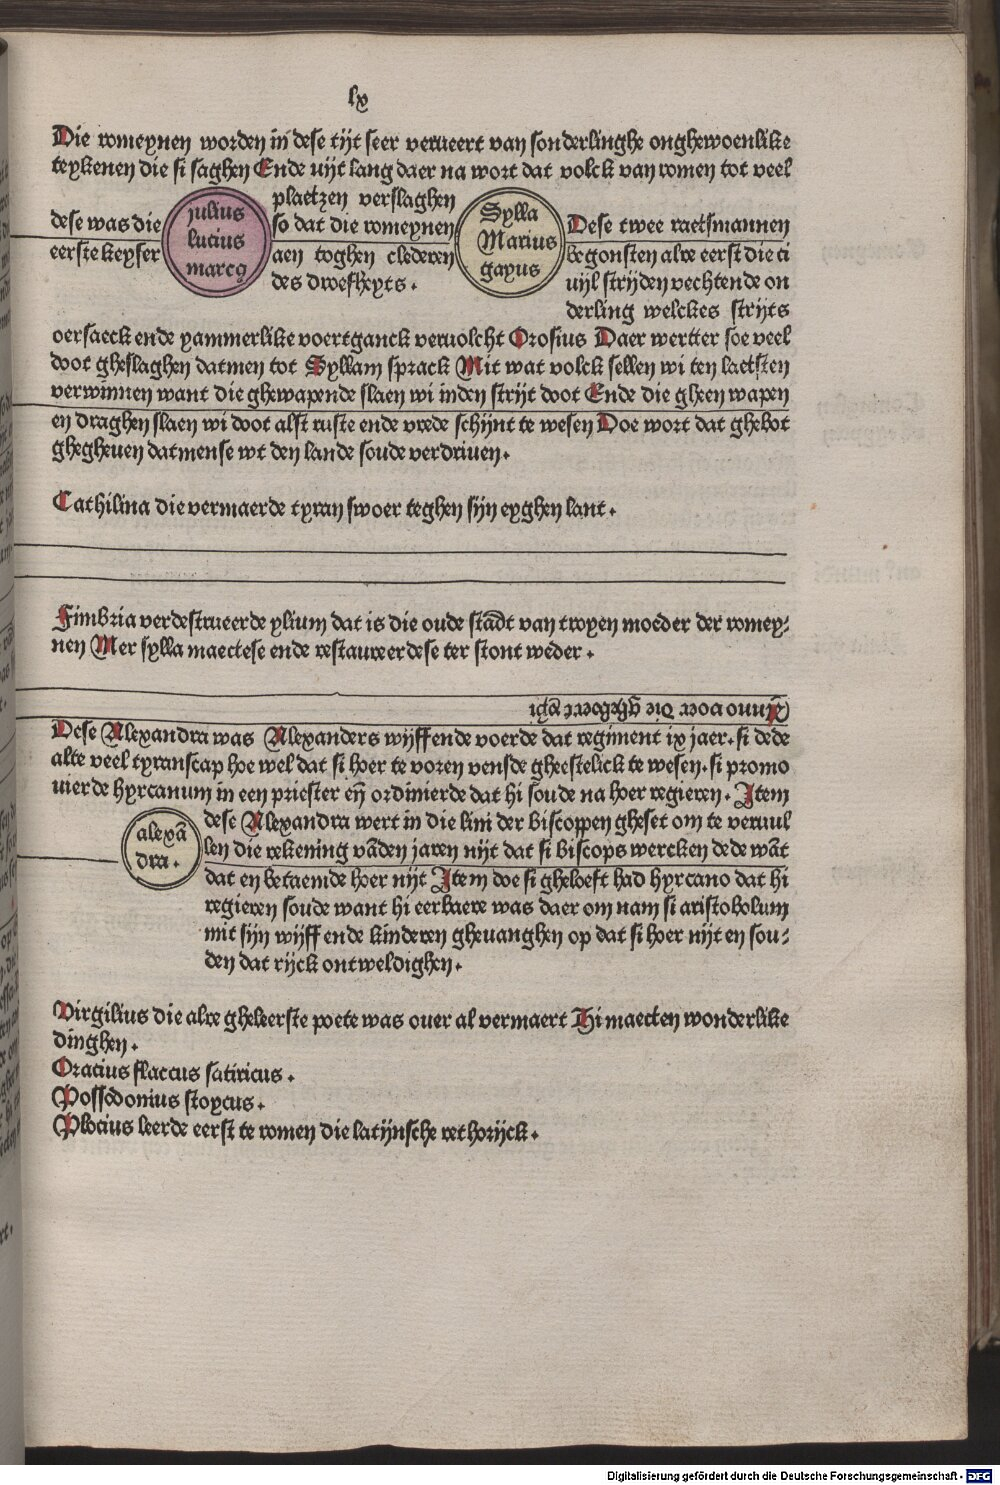 lx
Die romeynen worden in dese tijt seer verueert van sonderlinghe onghewoenlike
teykenen die si saghen Ende uijt lang daer na wort dat volck van romen tot veel
plaetzen verslaghen
so dat die romeynen
aen toghen clederen
des droefheyts.
dese was die
eerste keyser
julius
lucius
marcꝰ
Sylla
Marius
gayus
Dese twee raetsmannen
begonsten alre eerst die ci
uijl strijden vechtende on
derling welckes strijts
oersaeck ende yammerlike voertganck veruolcht Orosius Daer wertter soe veel
doot gheslaghen datmen tot Syllam sprack Mit wat volck sellen wi ten laetsten
verwinnen want die ghewapende slaen wi inden strijt doot Ende die gheen wapen
en draghen slaen wi doot alst ruste ende vrede schijnt te wesen Doe wort dat ghebot
ghegheuen datmense wt den lande soude verdriuen.
Cathilina die vermaerde tyran swoer teghen sijn eyghen lant.
Fimbria verdestrueerde ylium dat is die oude stadt van troyen moeder der romey-
nen Mer sylla maectese ende restaureerdese ter stont weder.
Anno voer die gheboert
Dese Alexandra was Alexanders wijff ende voerde dat regiment ix jaer. si dede
alte veel tyranscap hoe wel dat si hoer te voren vensde gheestelick te wesen. si promo
uierde hyrcanum in een priester eñ ordinierde dat hi soude na hoer regieren. Item
alexā
dra.
dese Alexandra wert in die lini der biscoppen gheset om te veruul
len die rekening vāden jaren nijt dat si biscops wercken dede wāt
dat en betaemde hoer nijt Item doe si gheloeft had hyrcano dat hi
regieren soude want hi eerbaere was daer om nam si aristobolum
mit sijn wijff ende kinderen gheuanghen op dat si hoer nijt en sou-
den dat rijck ontweldighen.
Virgilius die alre gheleerste poete was ouer al vermaert Hi maecten wonderlike
dinghen.
Oracius flaccus satiricus.
Possodonius stoycus.
Plocius leerde eerst te romen die latijnsche rethorijck.
Digitalisierung gefördert durch die Deutsche Forschungsgemeinschaft - DFG